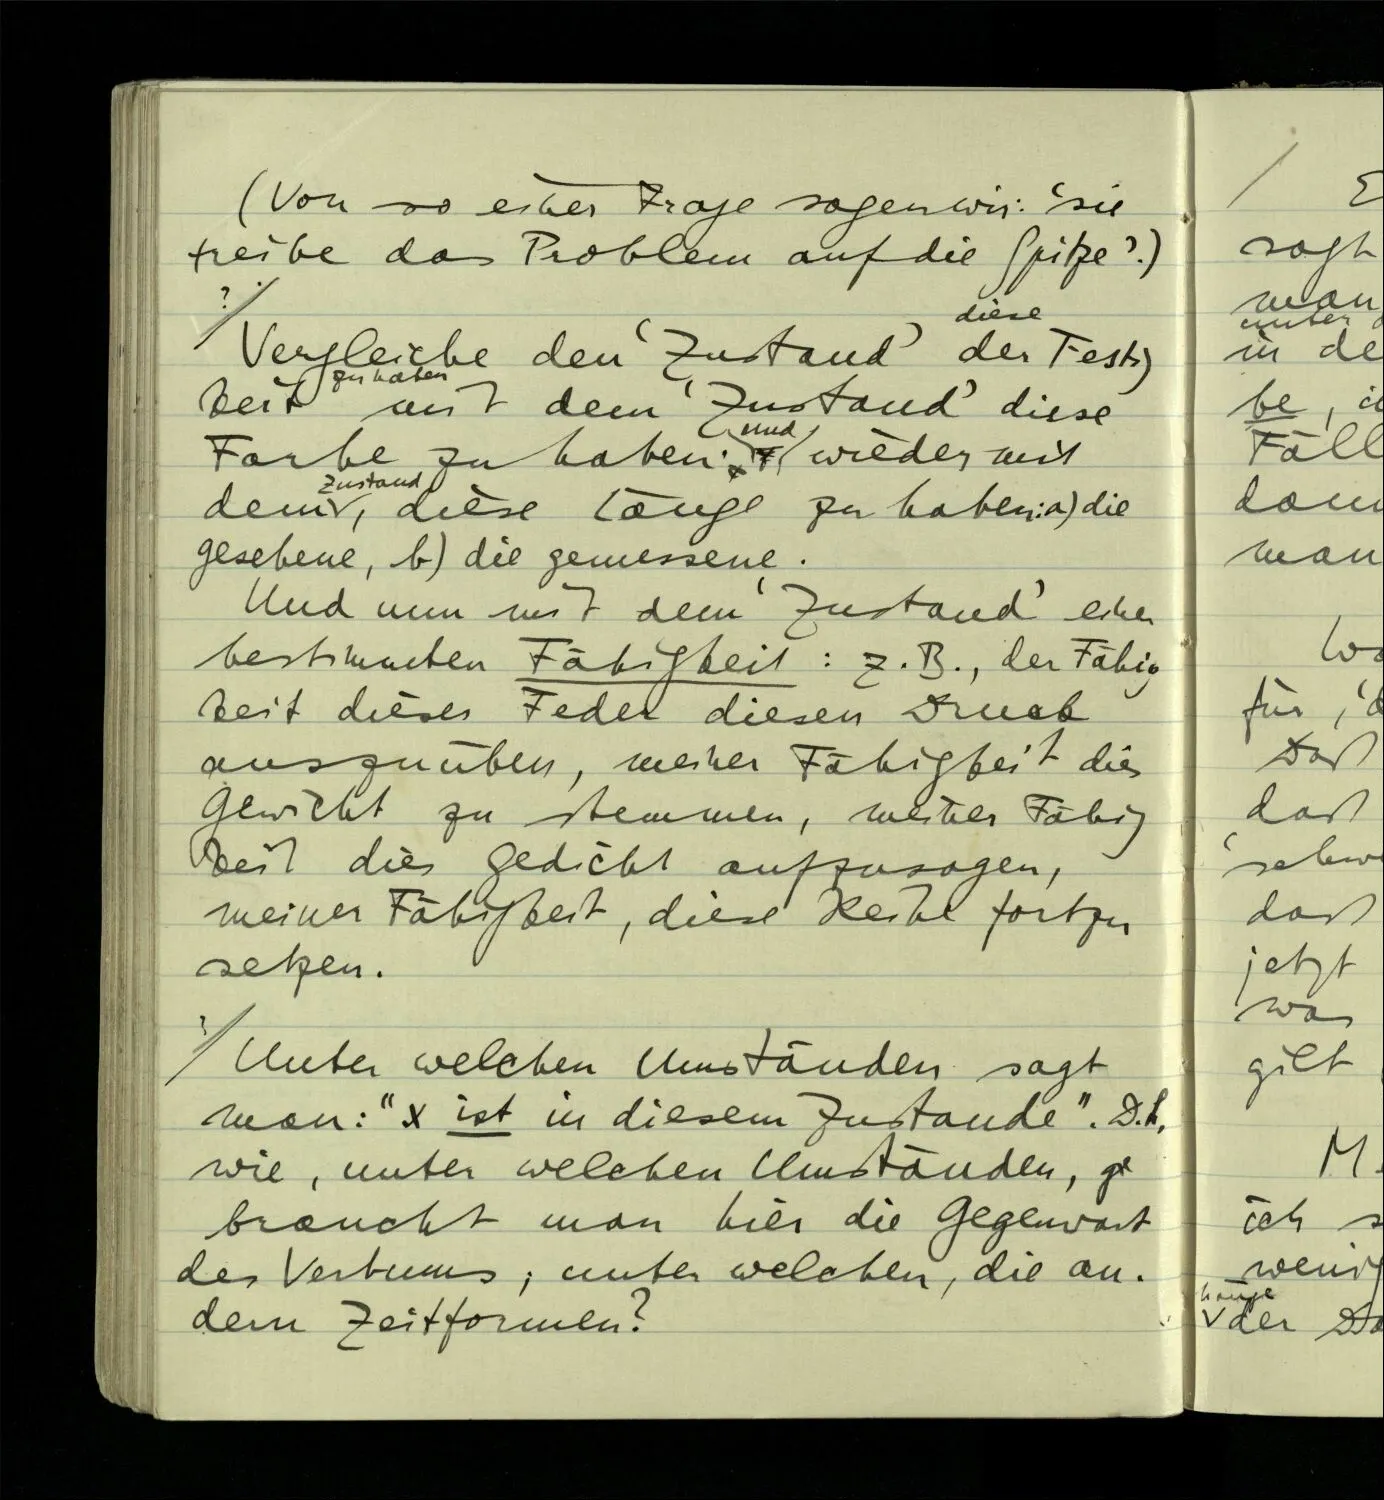 (Von so einer Frage sagen wir: 'sie
treibe das Problem auf die Spitze'.)
?/
diese
Vergleiche den 'Zustand' der Festig
zu haben
keit mit dem 'Zustand' diese
und
Farbe zu haben; wieder mit
Zustand
dem, diese Länge zu haben: a) die
gesehene, b) die gemessene.
Und nun mit dem 'Zustand' einer
bestimmten Fähigkeit: z.B., der Fähig
keit dieser Feder diesen Druck
auszuüben, meiner Fähigkeit dies
Gewicht zu stemmen, meiner Fähig
keit dies Gedicht aufzusagen,
meiner Fähigkeit, diese Reihe fortzu
setzen.
?/
Unter welchen Umständen sagt
man: "x ist in diesem Zustande". D.h.
wie, unter welchen Umständen, ge
braucht man hier die Gegenwart
des Verbums; unter welchen, die an-
dern Zeitformen?
/ E
sagt
man
unter
in de
be, i
Fäll
dann
man
für, 'd
Daß
daß
'schwe
daß
jetzt
was
gilt
M
ich s
wenig
der Da